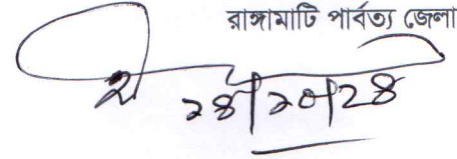 রাঙ্গামাটি পার্বত্য জেলা
২৪/২০/২৪